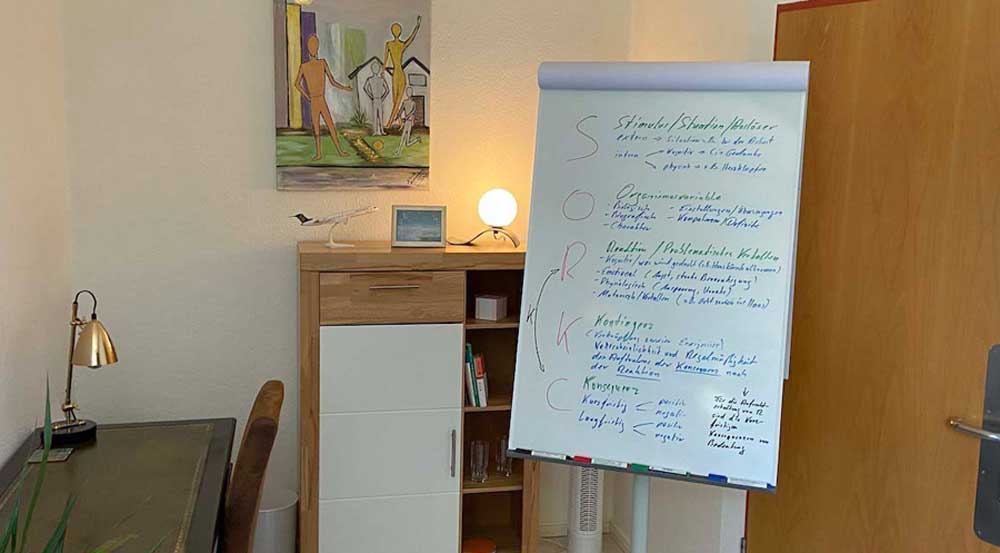 S Stimulus/Situation/Auslöser
extern → Situationen bei der Arbeit
intern → kognitiv → Gedanke
→ physisch → z.B. Herzklopfen
O Organismusvariable
- Biologische - Einstellungen/Überzeugungen
- Biografische - Kompetenzen/Defizite
- Charakter
R Reaktion / Problematisches Verhalten
- Kognitiv/was wird gedacht
- Emotional (Angst, starke Beunruhigung)
- Physiologisch (Anspannung, Unruhe)
- Motorisch/Verhalten
K
K Kontingenz
(Verknüpfung zweier Ereignisse)
Wahrscheinlichkeit und Regelmäßigkeit
des Auftretens der Konsequenz nach
der Reaktion
C Konsequenz
Kurzfristig positiv
negativ
Langfristig positiv
negativ
↓
Für die Aufrecht-
erhaltung von R
sind die kurz-
fristigen
Konsequenzen von
Bedeutung